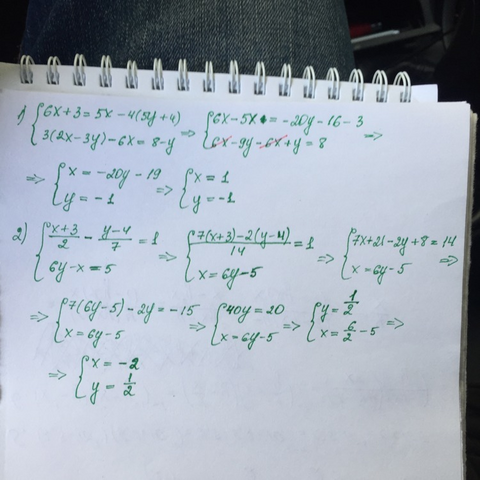 1) { 6x + 3 = 5x - 4(5y + 4) ; 3(2x - 3y) - 6x = 8 - y => { 6x - 5x = -20y - 16 - 3 ; 6x - 9y - 6x + y = 8 =>
=> { x = -20y - 19 ; y = -1 => { x = 1 ; y = -1
2) { (x+3)/2 - (y-4)/7 = 1 ; 6y - x = 5 => { (7(x+3) - 2(y-4))/14 = 1 ; x = 6y - 5 => { 7x + 21 - 2y + 8 = 14 ; x = 6y - 5 =>
=> { 7(6y-5) - 2y = -15 ; x = 6y - 5 => { 40y = 20 ; x = 6y - 5 => { y = 1/2 ; x = 6/2 - 5 =>
=> { x = -2 ; y = 1/2